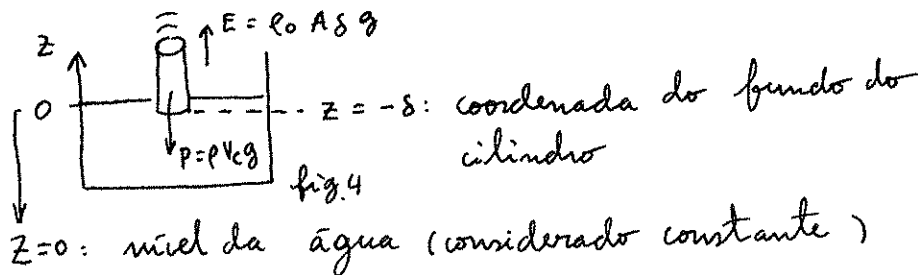 E = ρ₀ A δ g
z
0
z = -δ: coordenada do fundo do
cilindro
P=ρVcg
fig.4
z=0: nível da água (considerado constante)